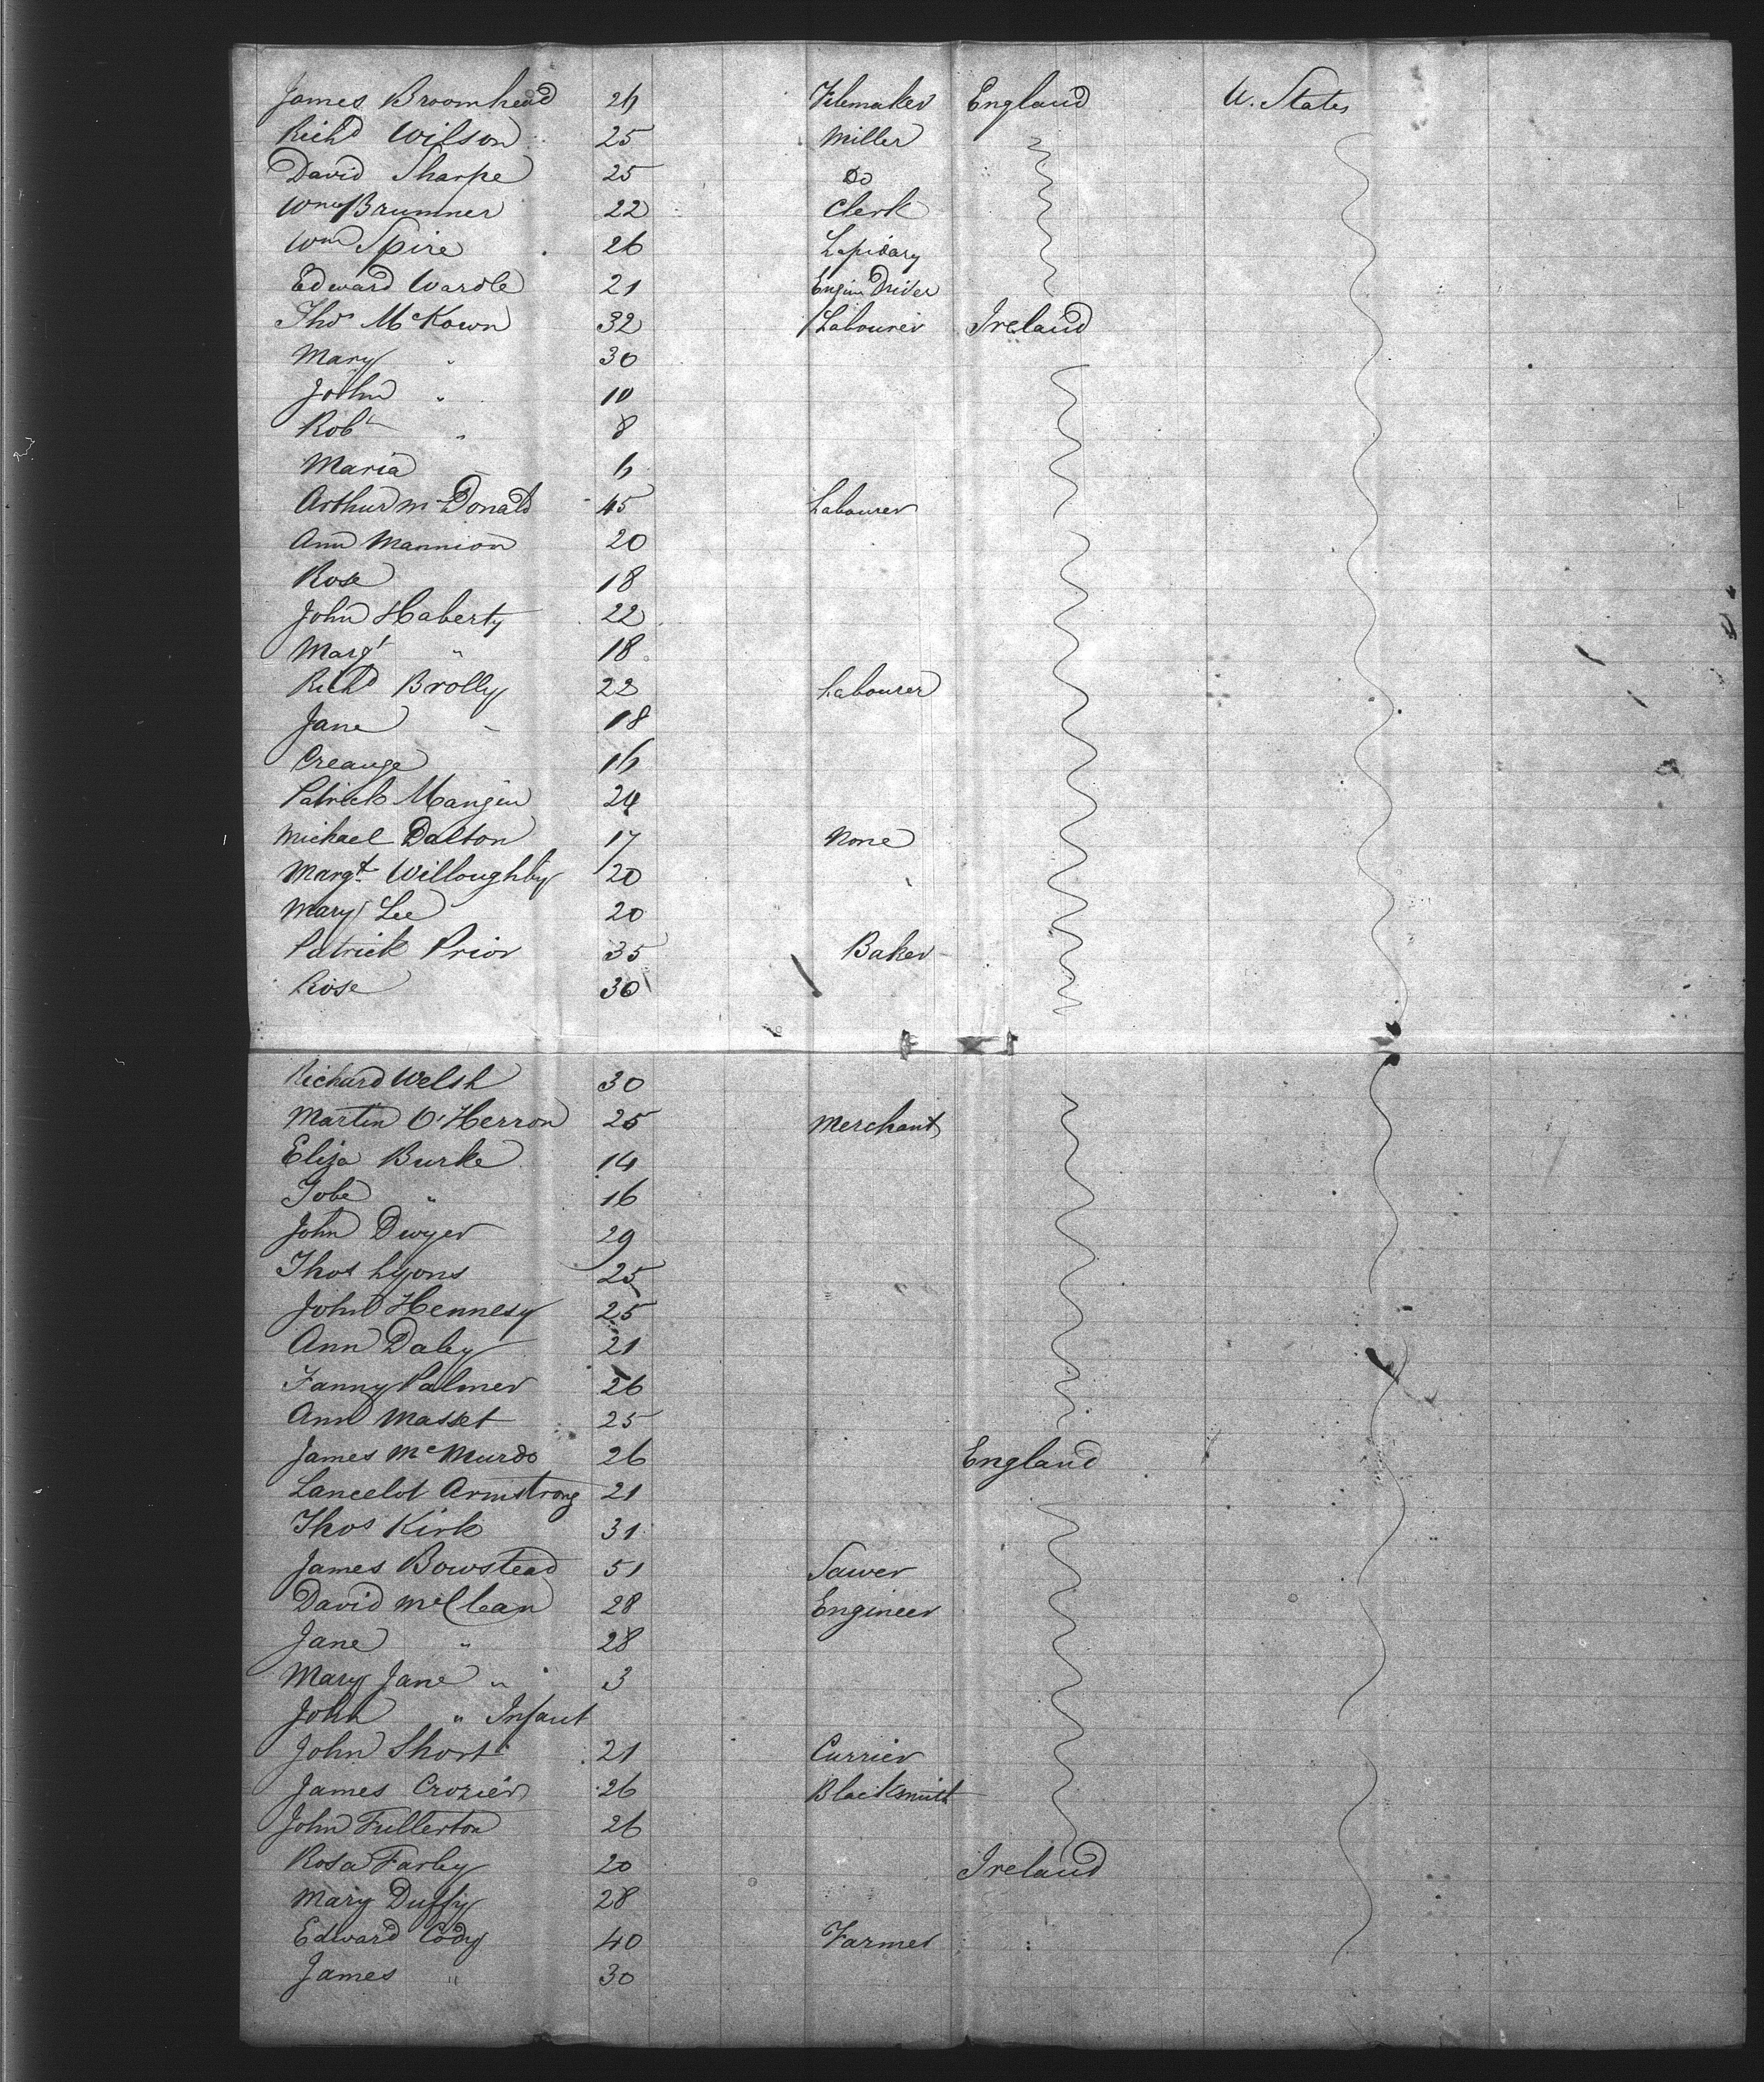 James Broomhead 26 Filemaker England U. States
Richd Wilson 25 Miller
David Sharpe 25 Do
Wm Brumner 22 Clerk
Wm Spire 26 Lapidary
Edward Wardle 21 Engine Driver
Thos McKown 32 Labourer Ireland
Mary " 30
John " 10
Robt " 8
Maria 6
Arthur McDonald 45 Labourer
Ann Mannion 20
Rose 18
John Haberty 22
Margt " 18
Richd Brolly 22 Labourer
Jane " 18
16
Patrick Mangin 24
Michael Dalton 17 None
Margt Willoughby 20
Mary Lee 20
Patrick Prior 35 Baker
Rose 30
Richard Welsh 30
Martin O'Herron 25 Merchant
Eliza Burke 14
Tobe " 16
John Dwyer 29
Thos Lyons 25
John Hennesy 25
Ann Daley 21
Fanny Palmer 26
Ann Masset 25
James McMurdo 26 England
Lancelot Armstrong 21
Thos Kirk 31
James Bowstead 51 Sawer
David McClean 28 Engineer
Jane " 28
Mary Jane " 3
John " Infant
John Short 21 Currier
James Crozier 26 Blacksmith
John Fullerton 26
Rosa Farley 20 Ireland
Mary Duffy 28
Edward Cody 40 Farmer
James " 30